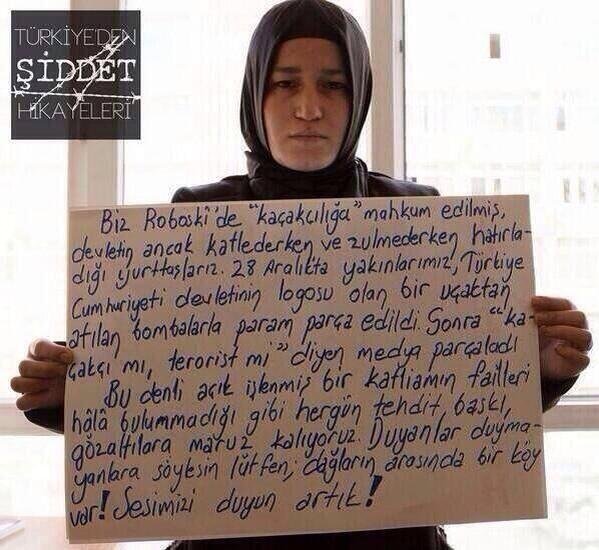 TÜRKİYE'DEN
ŞİDDET
HİKAYELERİ
Biz Roboski'de "kaçakçılığa" mahkum edilmiş,
devletin ancak katlederken ve zulmederken hatırla-
dığı yurttaşlarız. 28 Aralıkta yakınlarımız, Türkiye
Cumhuriyeti devletinin logosu olan bir uçaktan
atılan bombalarla param parça edildi. Sonra "ka-
çakçı mı, terorist mi" diyen medya parçaladı
Bu denli açık işlenmiş bir katliamın failleri
hâlâ bulunmadığı gibi hergün tehdit, baskı,
gözaltılara maruz kalıyoruz. Duyanlar duyma-
yanlara söylesin lütfen; dağların arasında bir köy
var! Sesimizi duyun artık!